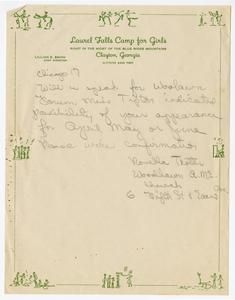 Laurel Falls Camp for Girls
RIGHT IN THE MIDST OF THE BLUE RIDGE MOUNTAINS
Clayton, Georgia
LILLIAN E. SMITH
CAMP DIRECTOR
Chicago 17
Will u speak for Woodlawn
Forum Miss indicated
possibility of your appearance
for April May or June
Please write confirmation
Rosella
Woodlawn A.M.E.
Church
6